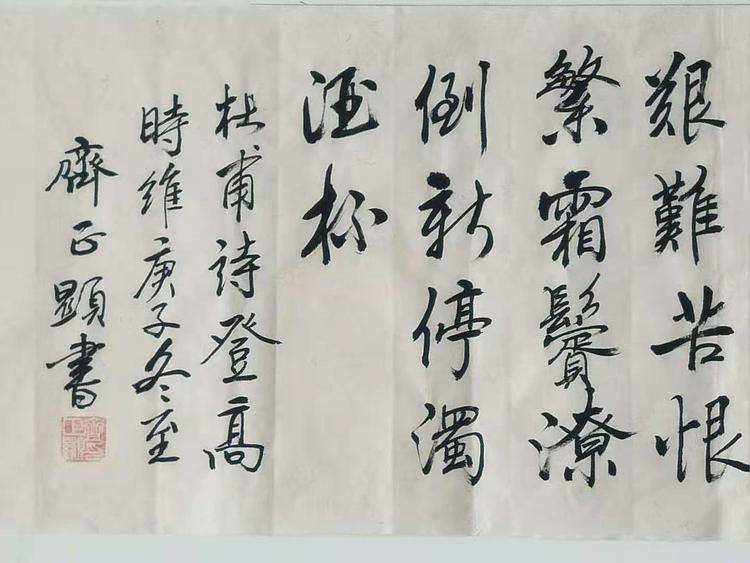 艱難苦恨
繁霜鬢潦
倒新停濁
酒杯
杜甫詩登高
時維庚子冬至
齊正顕書